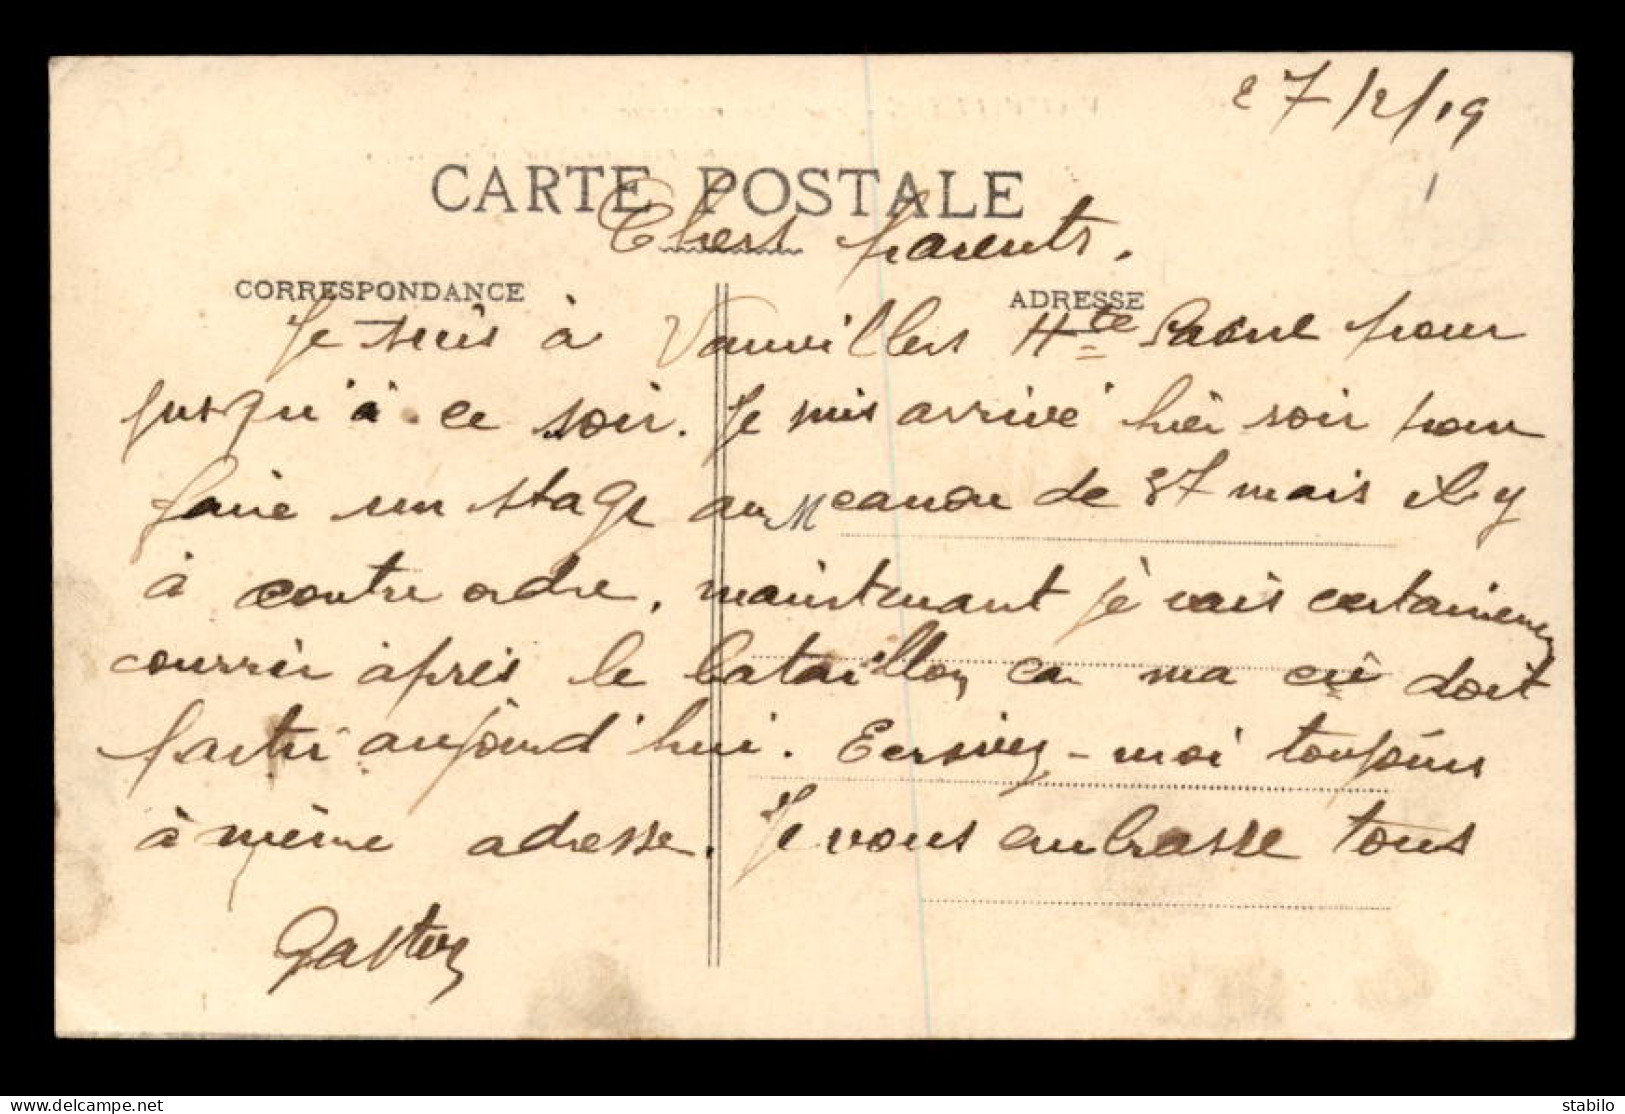 27/2/19
CARTE POSTALE
Chers parents.
CORRESPONDANCE
ADRESSE
Je suis à Vauvillers Hte Saone pour
jusqu'à ce soir. Je suis arrivé hier soir pour
faire un stage au canon de 37 mais il y
à contre ordre, maintenant je vais certainemen
courrir après le bataillon, car ma cie doit
partir aujourd'hui. Ecrsivez-moi toujours
à même adresse. Je vous embrasse tous
Gaston
stabilo